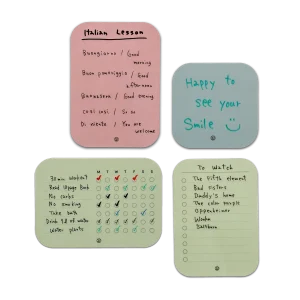 Italian Lesson
Buongiorno / Good
morning
Buon pomeriggio / Good
afternoon
Buonasera / Good evening
così così / So so
Di niente / You are
welcome
Happy to
see your
Smile
M T W T F S S
30 min workout
Read 10page Book
No carbs
No smoking
Take bath
Drink 2L of water
Water plants
To Watch
The Fifth element
Bad sisters
Daddy's home
The color purple
Oppenheimer
Wonka
Saltburn